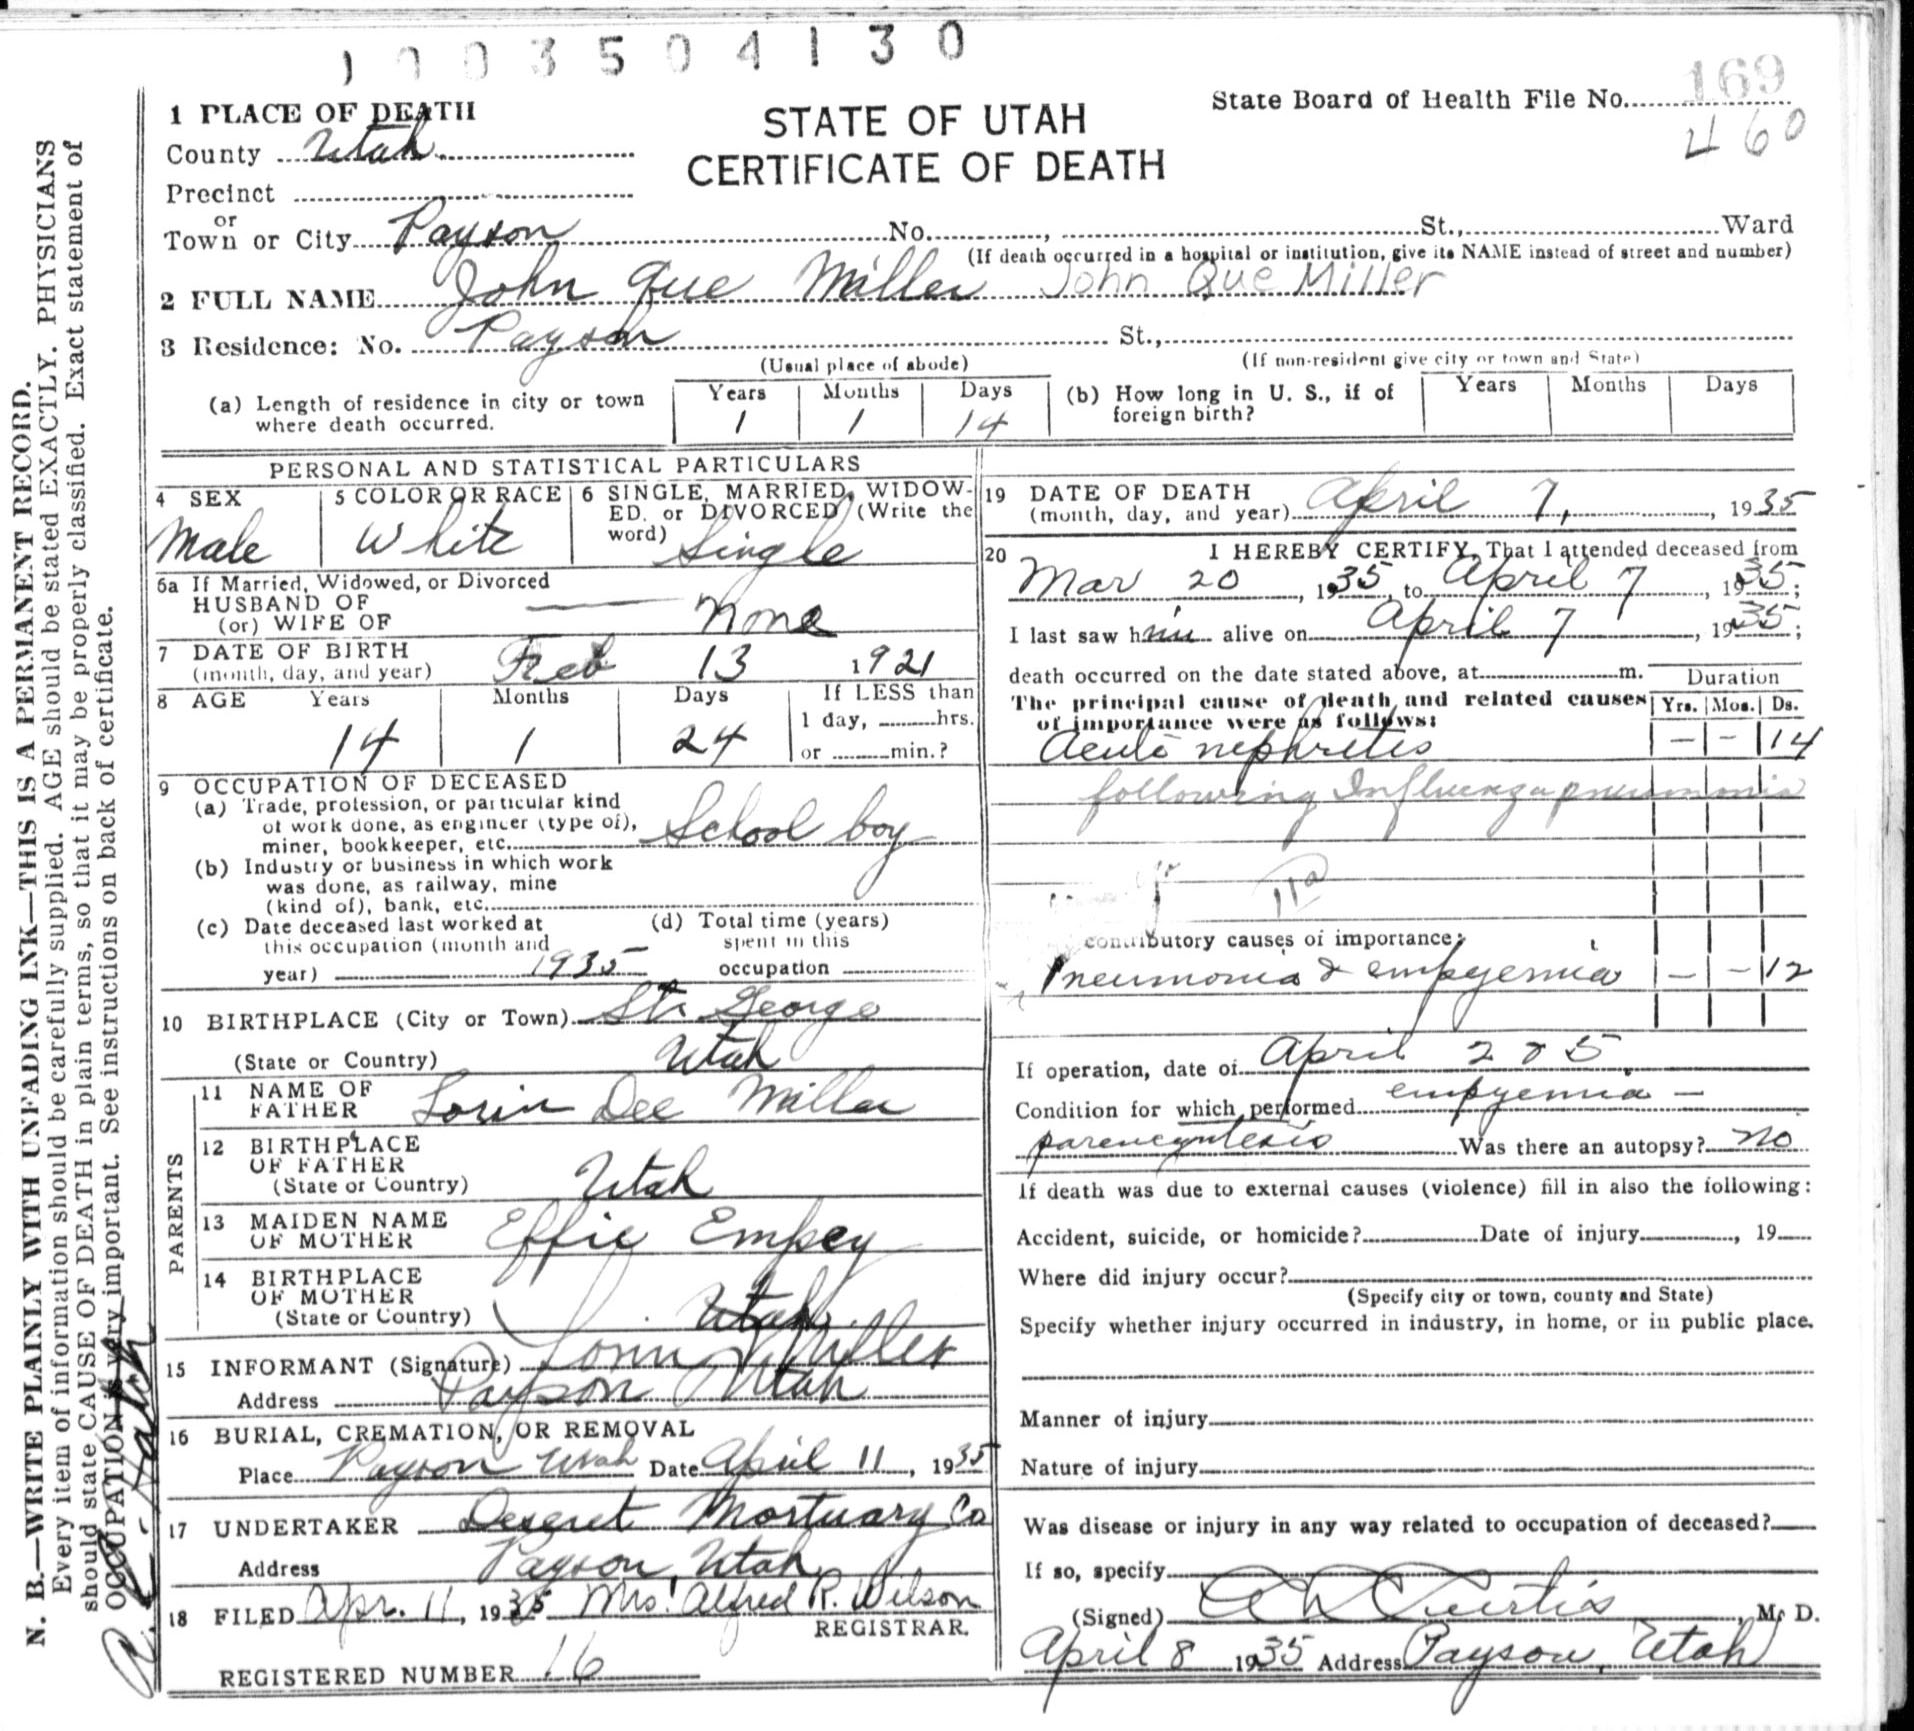 1003504130
169
State Board of Health File No.
460
STATE OF UTAH
CERTIFICATE OF DEATH
1 PLACE OF DEATH
County Utah
Precinct
or
Town or City Payson No. , St., Ward
(If death occurred in a hospital or institution, give its NAME instead of street and number)
2 FULL NAME John Que Miller John Que Miller
3 Residence: No. Payson St.,
(Usual place of abode) (If non-resident give city or town and State)
(a) Length of residence in city or town where death occurred. Years 1 Months 1 Days 14
(b) How long in U. S., if of foreign birth? Years Months Days
PERSONAL AND STATISTICAL PARTICULARS
4 SEX Male
5 COLOR OR RACE White
6 SINGLE, MARRIED, WIDOWED, or DIVORCED (Write the word) Single
6a If Married, Widowed, or Divorced
HUSBAND OF
(or) WIFE OF None
7 DATE OF BIRTH
(month, day, and year) Feb 13 1921
8 AGE Years 14 Months 1 Days 24 If LESS than
1 day, hrs.
or min.?
9 OCCUPATION OF DECEASED
(a) Trade, profession, or particular kind
of work done, as engineer (type of),
miner, bookkeeper, etc. School boy
(b) Industry or business in which work
was done, as railway, mine
(kind of), bank, etc.
(c) Date deceased last worked at
this occupation (month and
year) 1935
(d) Total time (years)
spent in this
occupation
10 BIRTHPLACE (City or Town) St. George
(State or Country) Utah
PARENTS
11 NAME OF
FATHER Lorin Dee Miller
12 BIRTHPLACE
OF FATHER
(State or Country) Utah
13 MAIDEN NAME
OF MOTHER Effie Empey
14 BIRTHPLACE
OF MOTHER
(State or Country) Utah
15 INFORMANT (Signature) Lorin Miller
Address Payson Utah
16 BURIAL, CREMATION, OR REMOVAL
Place Payson Utah Date April 11, 1935
17 UNDERTAKER Deseret Mortuary Co
Address Payson, Utah
18 FILED Apr. 11, 1935 Mrs. Alfred R. Wilson
REGISTRAR.
REGISTERED NUMBER 16
19 DATE OF DEATH
(month, day, and year) April 7, , 1935
20 I HEREBY CERTIFY, That I attended deceased from
Mar 20, 1935, to April 7, 1935;
I last saw him alive on April 7, 1935;
death occurred on the date stated above, at m.
Duration
The principal cause of death and related causes
of importance were as follows: Yrs. Mos. Ds.
Acute nephritis - - 14
following Influenza pneumonia
11a
contributory causes of importance:
Pneumonia & empyemia - - 12
If operation, date of April 2 & 5
Condition for which performed empyemia -
Was there an autopsy? no
If death was due to external causes (violence) fill in also the following:
Accident, suicide, or homicide? Date of injury , 19
Where did injury occur?
(Specify city or town, county and State)
Specify whether injury occurred in industry, in home, or in public place.
Manner of injury
Nature of injury
Was disease or injury in any way related to occupation of deceased?
If so, specify
(Signed) A L Curtis, M. D.
April 8 1935 Address Payson, Utah
N. B.—WRITE PLAINLY WITH UNFADING INK—THIS IS A PERMANENT RECORD.
Every item of information should be carefully supplied. AGE should be stated EXACTLY. PHYSICIANS
should state CAUSE OF DEATH in plain terms, so that it may be properly classified. Exact statement of
OCCUPATION is very important. See instructions on back of certificate.